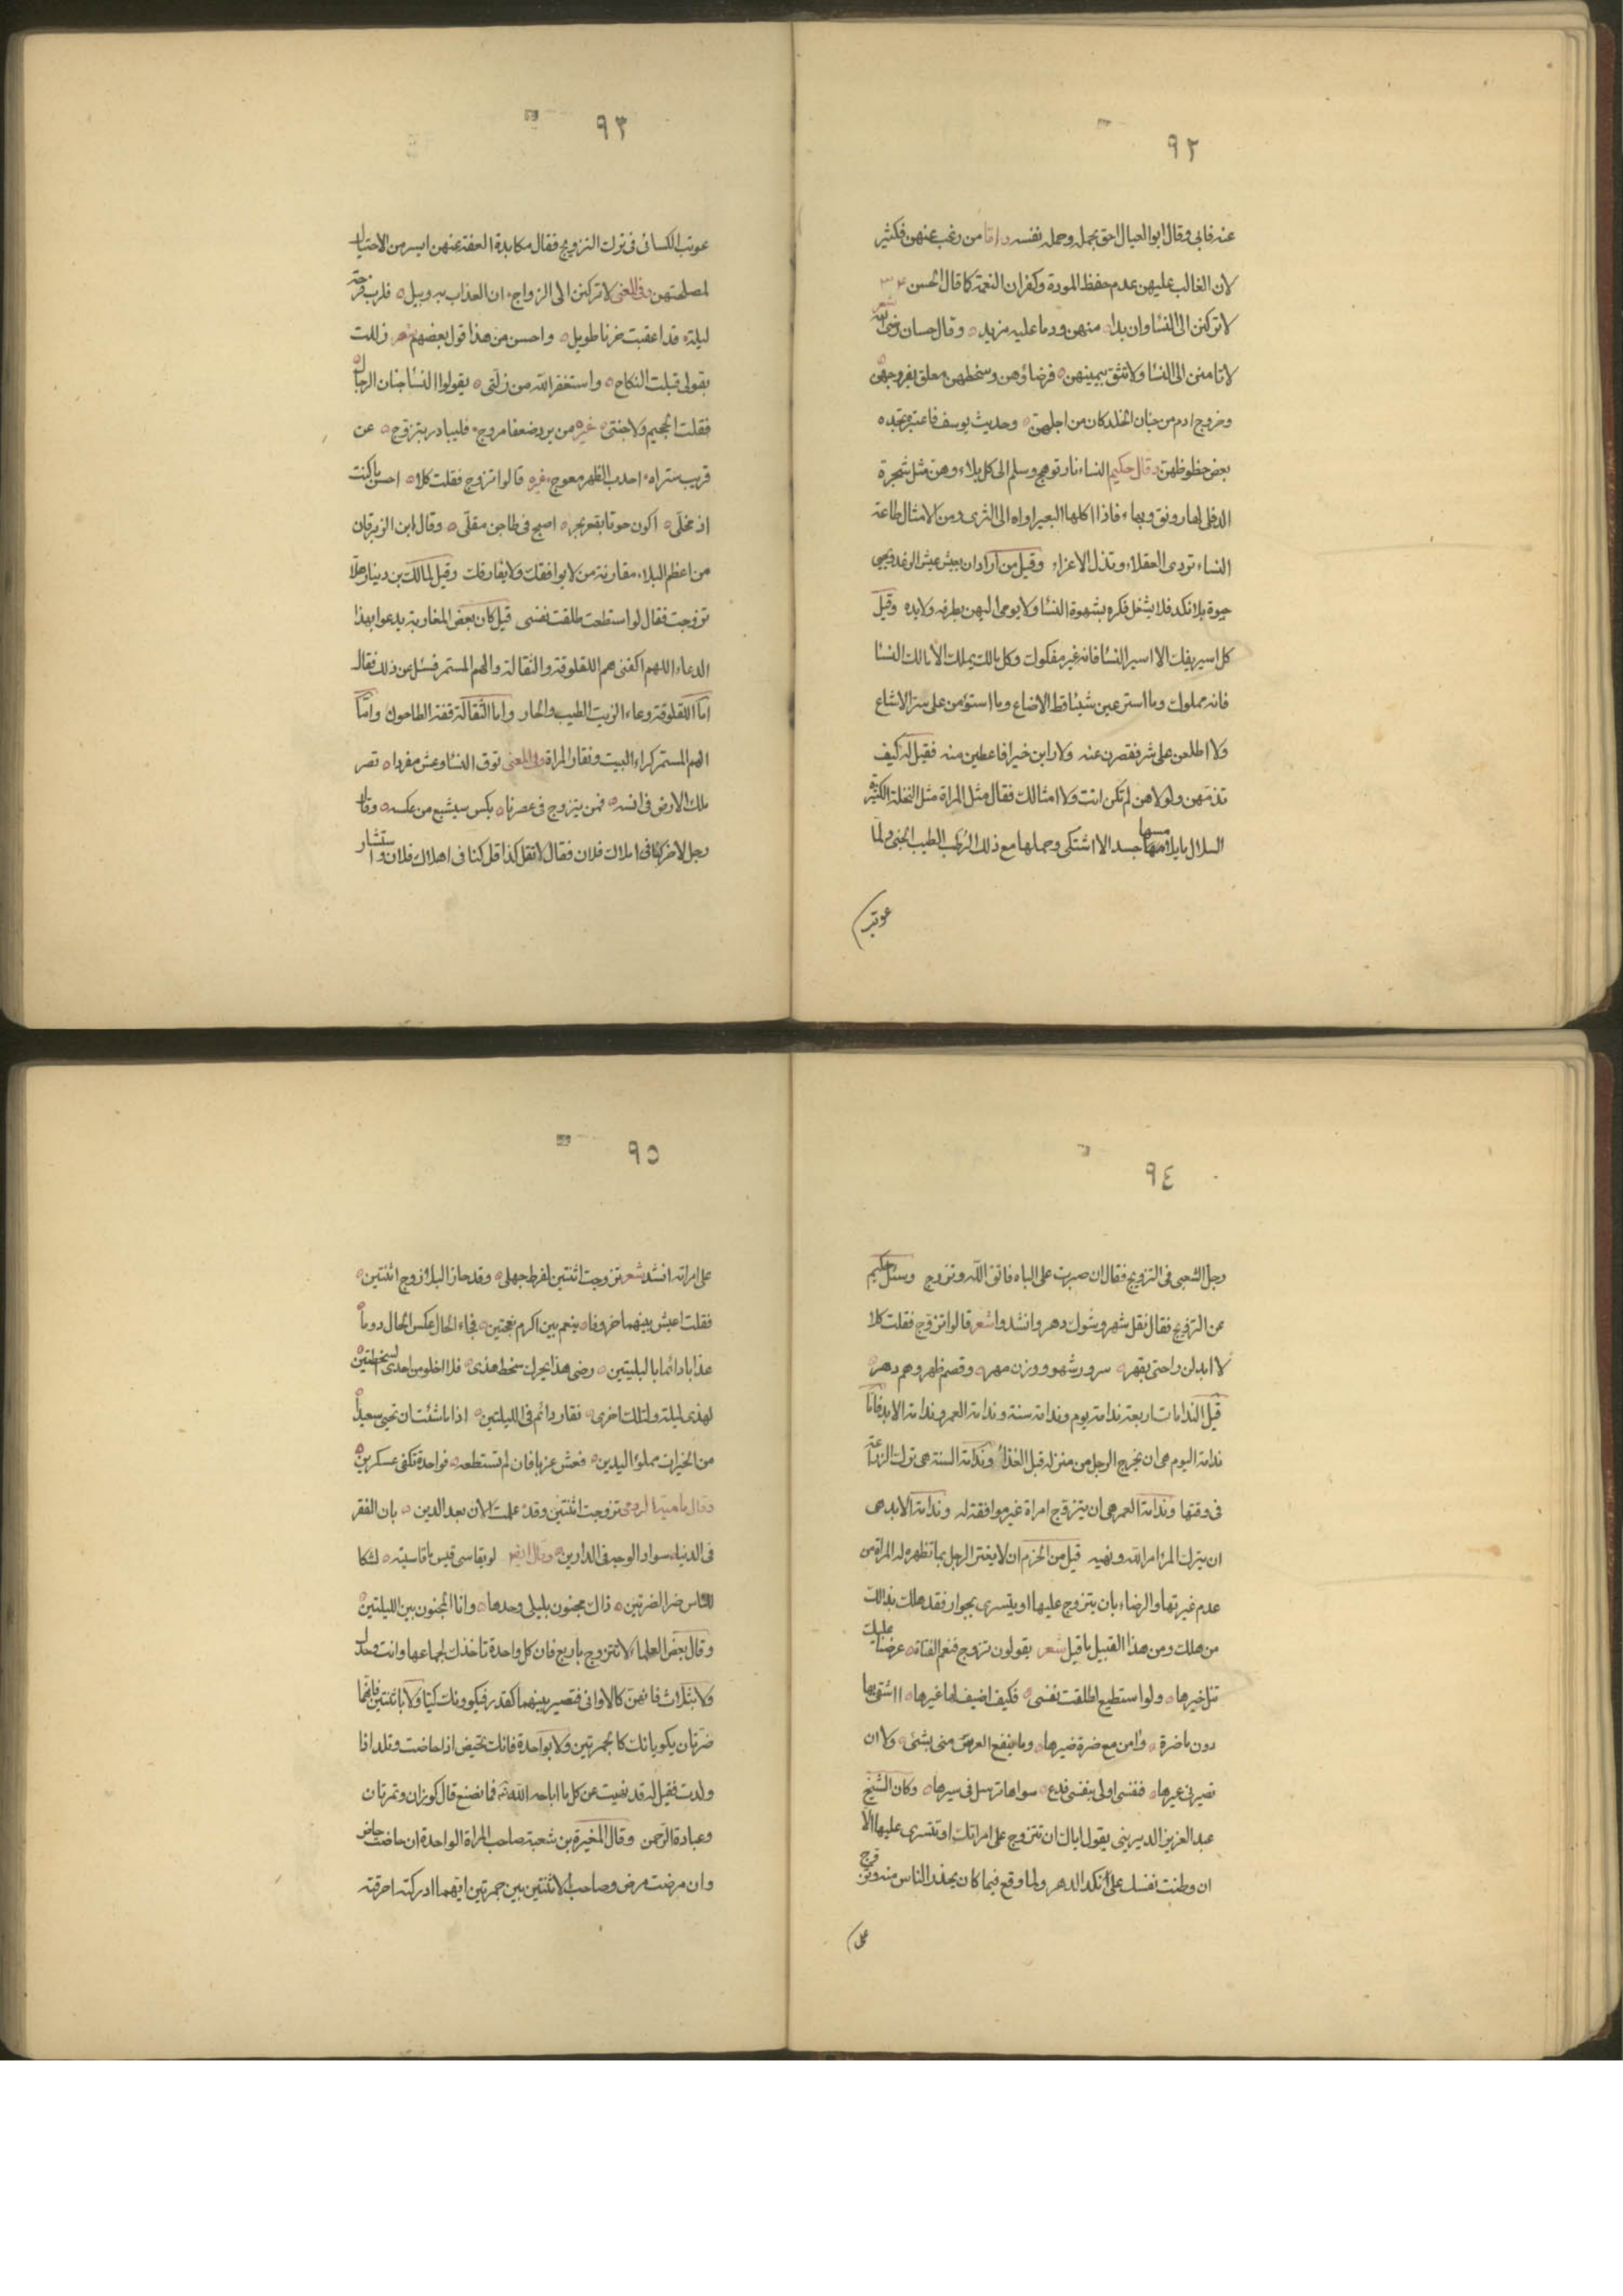 ٩٢
عنه فابى وقال ابو العيال احق بحمله وحمله نفسه واما من رغب عنهن فكثير
لان الغالب عليهن عدم حفظ المودة وكفران النعمة كما قال الحسن
لا تركنن الى النسا وان بدا منهن ود ما عليه مزيد وقال حسان رضى الله
لا تامنن الى النسا ولا تثق بيمينهن فرضاؤهن وسخطهن معلق بفروجهن
وخروج ادم من جنان الخلد كان من اجلهن وحديث يوسف فاعتبر تجده
بعض حظوظهن وقال حكيم النساء نار توهج وسلم الى كل بلاء وهن مثل شجرة
الدفلى لها رونق وبهاء فاذا اكلها البعير اواه الى الثرى ومن الامثال طاعة
النساء تردى العقلاء وتذل الاعزاء وقيل من اراد ان يعيش عيش الرغد ويحيى
حيوة بلا نكد فلا يشغل فكره بشهوة النسا ولا يومى اليهن بطرفه ولا يده وقيل
كل اسير يفك الا اسير النسا فانه غير مفكوك وكل مالك يملك الا مالك النسا
فانه مملوك وما استرعين شيئا قط الا ضاع وما استؤمن على سر الا شاع
ولا اطلعن على شر فقصرن عنه ولا راين خيرا فاعطين منه فقيل له كيف
تذمهن ولولاهن لم تكن انت ولا امثالك فقال مثل المراة مثل النخلة الكثيرة
السلال ما يلامسها جسد الا اشتكى وحملها مع ذلك الرطب الطيب الجنى ولما
عوتب
٩٣
عوتب الكسائى فى ترك التزويج فقال مكابدة العفة عنهن ايسر من الاحتيال
لمصلحتهن وفى المعنى لا تركنن الى الزواج ان العذاب به وبيل فلرب فرحة
ليلة قد اعقبت حزنا طويل واحسن من هذا قول بعضهم شعر زللت
بقولى قبلت النكاح واستغفر الله من زلتى يقولوا النسا جنان الرجال
فقلت الجحيم ولا جنتى غيره من يرد ضعفا مروج فليبادر بتزوج عن
قريب ستراه احدب الظهر معوج غيره قالوا تزوج فقلت كلا احسن ما كنت
اذ مخلى اكون حوتا بقعر بحر اصبح فى طاجن مقلى وقال ابن الزبرقان
من اعظم البلاء مقارنة من لا يوافقك ولا يفارقك وقيل لمالك بن دينار هلا
تزوجت فقال لو استطعت طلقت نفسى قيل كان بعض المغاربة يدعوا بهذا
الدعاء اللهم اكفنى هم اللقلوقة والنقالة والهم المستمر فسئل عن ذلك فقال
اما اللقلوقة وعاء الزيت الطيب والحار واما النقالة قفة الطاحون واما
الهم المستمر كراء البيت ونقار المراة وفى المعنى توق النسا وعش مفردا تصر
ملك الارض فى انسه فمن يتزوج فى عصرنا بكس سيشبع من عكسه وقال
رجل لاخر كنا فى املاك فلان فقال لا تقل كذا قل كنا فى اهلاك فلان واستشار
٩٤
رجل الشعبى فى التزويج فقال ان صبرت على الباه فاتق الله وتزوج وسئل حكيم
عن التزويج فقال نقل شهر وشوك دهر وانشدوا شعر قالوا تزوج فقلت كلا
لا ابدلن راحتى بقهر سرور شهر ووزن مهر وقصم ظهر وهم دهر
قيل الندامات اربعة ندامة يوم وندامة سنة وندامة العمر وندامة الابد فاما
ندامة اليوم هى ان يخرج الرجل من منزله قبل الغذاء وندامة السنة هى ترك الزراعة
فى وقتها وندامة العمر هى ان يتزوج امراة غير موافقة له وندامة الابد هى
ان يترك المرء امر الله ونهيه قيل من الحزم ان لا يغتر الرجل بما تظهره له المراة من
عدم غيرتها والرضاء بان يتزوج عليها او يتسرى بجوار فقد هلك بذالك
من هلك ومن هذا القبيل ما قيل شعر يقولون تزوج فنعم الفتاة عرضنا عليك
تنل خيرها ولو استطيع لطلقت نفسى فكيف اضيف لها غيرها ااشقى بها
دون ما ضرة وامن مع ضرة ضيرها وما ينفع العرس منى بشئ ولا ان
تصيرنى عيرها فنفسى اولى بنفسى فدع سواها ترسل فى سيرها وكان الشيخ
عبد العزيز الديرينى يقول اياك ان تتزوج على امراتك او تتسرى عليها الا
ان وطنت نفسك على نكد الدهر ولما وقع فيما كان يحذر الناس منه وتزوج
على
٩٥
على امراته انشد شعر تزوجت اثنتين لفرط جهلى وقد حاز البلا زوج اثنتين
فقلت اعيش بينهما خروفا ينعم بين اكرم نعجتين فجاء الحال عكس الحال دوما
عذابا دائما بالبليتين رضى هذا يحرك سخط هذى فلا اخلو من احدى السخطتين
لهذى ليلة ولتلك اخرى نقار دائم فى الليلتين اذا ما شئت ان تحيى سعيدا
من الخيرات مملؤ اليدين فعش عزبا فان لم تستطعه فواحدة تكفى عسكرين
وقال مامية الرومى تزوجت اثنتين وقد علمت الان بعد الدين بان الفقر
فى الدنيا سواد الوجه فى الدارين وقال ايضا لو يقاسى قيس ما قاسيته لشكا
للناس ضر الضرتين ذاك مجنون بليلى وحدها وانا المجنون بين الليلتين
وقال بعض العلماء لا تتزوج باربع فان كل واحدة تاخذك لجماعها وانت وحدك
ولا بثلاث فانهن كالاوانى فتصير بينهما كقدر فيكوونك كيا ولا باثنتين فانهما
ضرتان يكويانك كالجمرتين ولا بواحدة فانك تحيض اذا حاضت وتلد اذا
ولدت فقيل له قد نهيت عن كل ما اباحه الله تع فما نصنع قال كوزان وتمرتان
وعبادة الرحمن وقال المغيرة بن شعبة صاحب المراة الواحدة ان حاضت حاض
وان مرضت مرض وصاحب الاثنتين بين جمرتين ايتهما ادركته احرقته